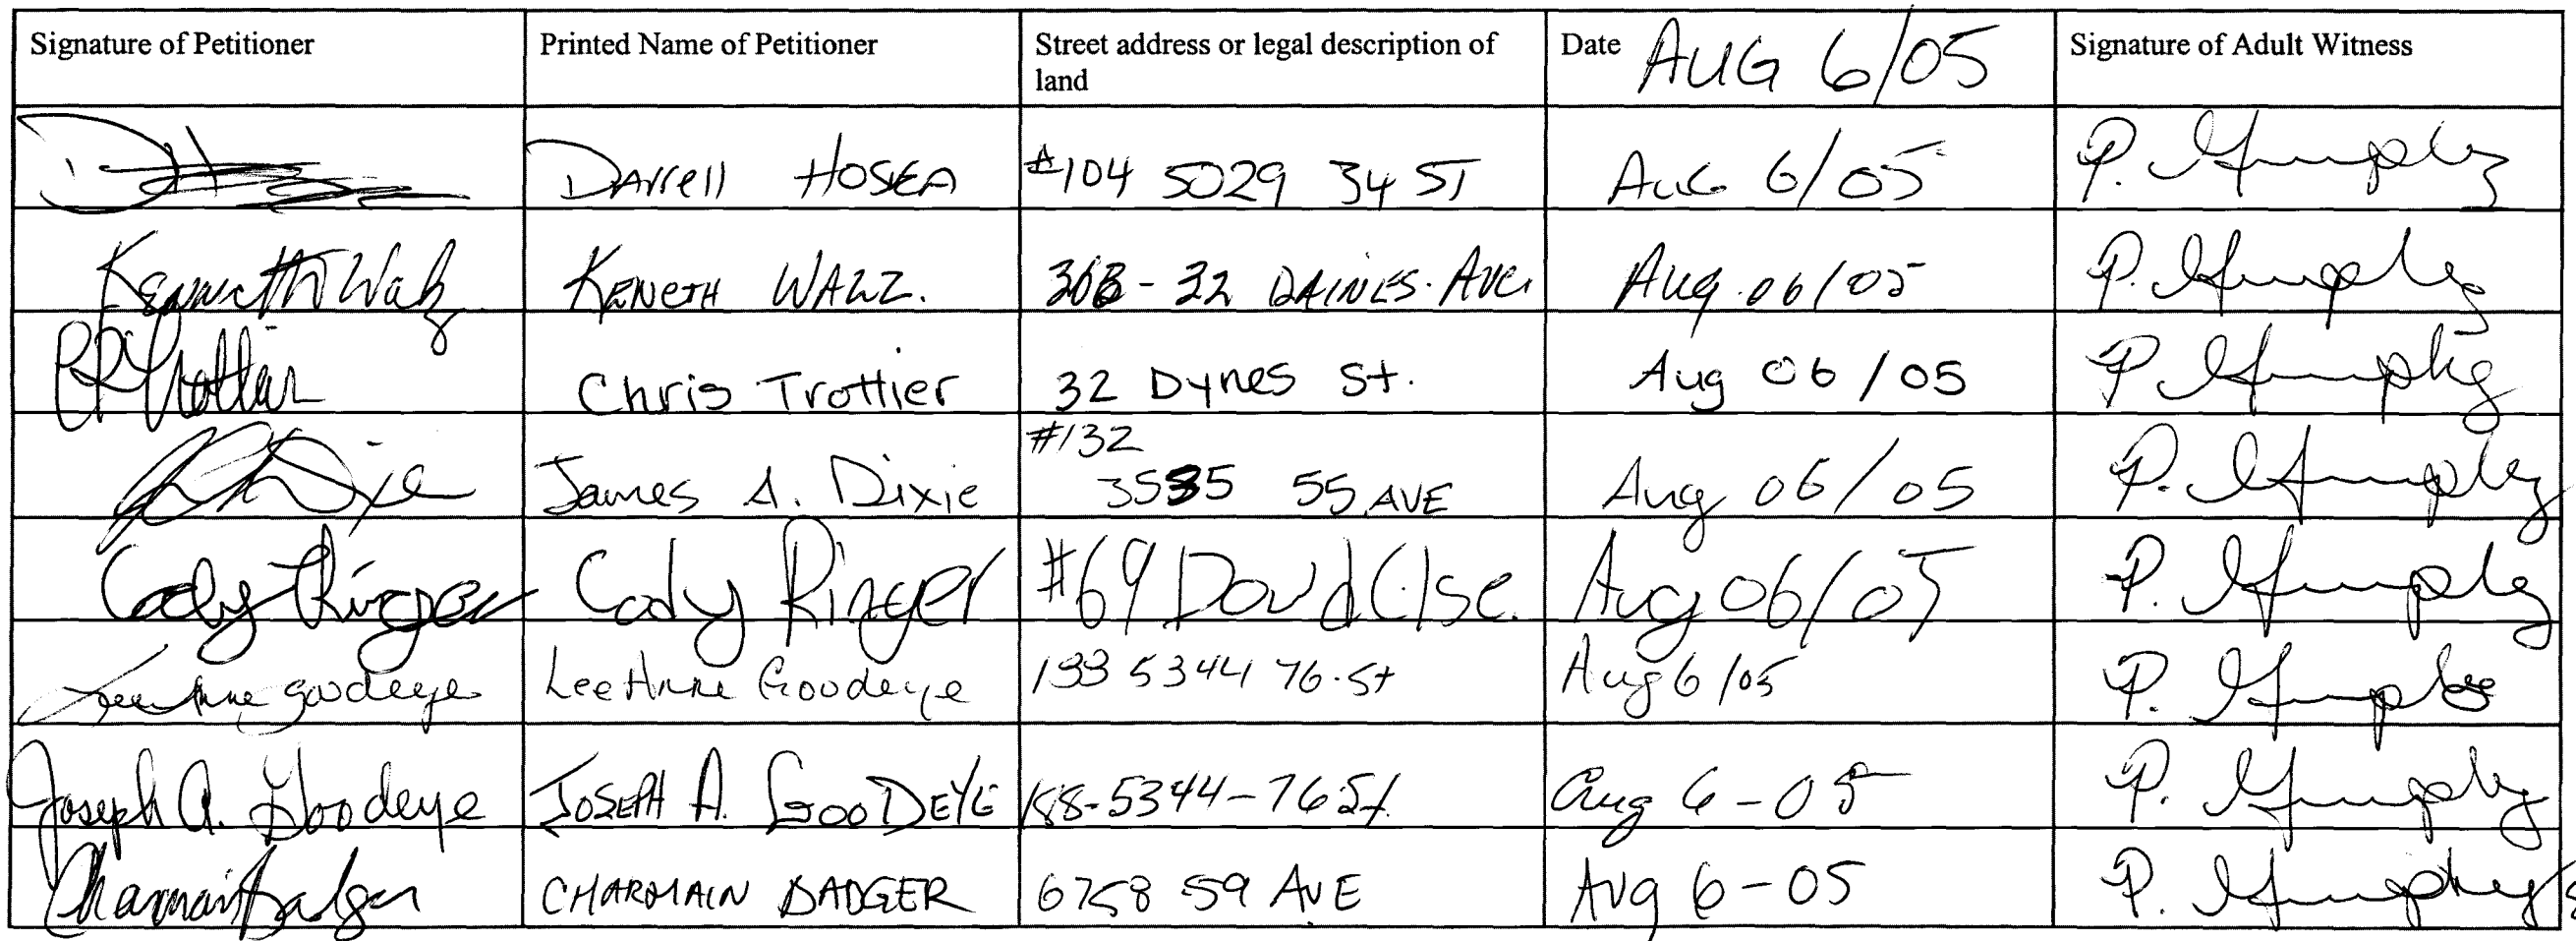 Signature of Petitioner Printed Name of Petitioner Street address or legal description of land Date AUG 6/05 Signature of Adult Witness
Darrell HOSEA #104 5029 34 ST Aug 6/05 P.
Kenneth Walz KENETH WALZ. 36B - 32 DAINES. AVE. Aug. 06/05 P.
Chris Trottier 32 Dynes St. Aug 06/05 P.
Dixie James A. Dixie #132 3535 55 AVE Aug 06/05 P.
Cody Ringer Cody Ringer #69 Aug 06/05 P.
LeeAnne goodeye LeeAnne Goodeye 133 5344 76.St Aug 6/05 P.
Joseph A. Goodeye JOSEPH A. GOODEYE 188-5344-76 St. Aug 6-05 P.
Charmain Badger CHARMAIN BADGER 6758 59 AVE Aug 6-05 P.